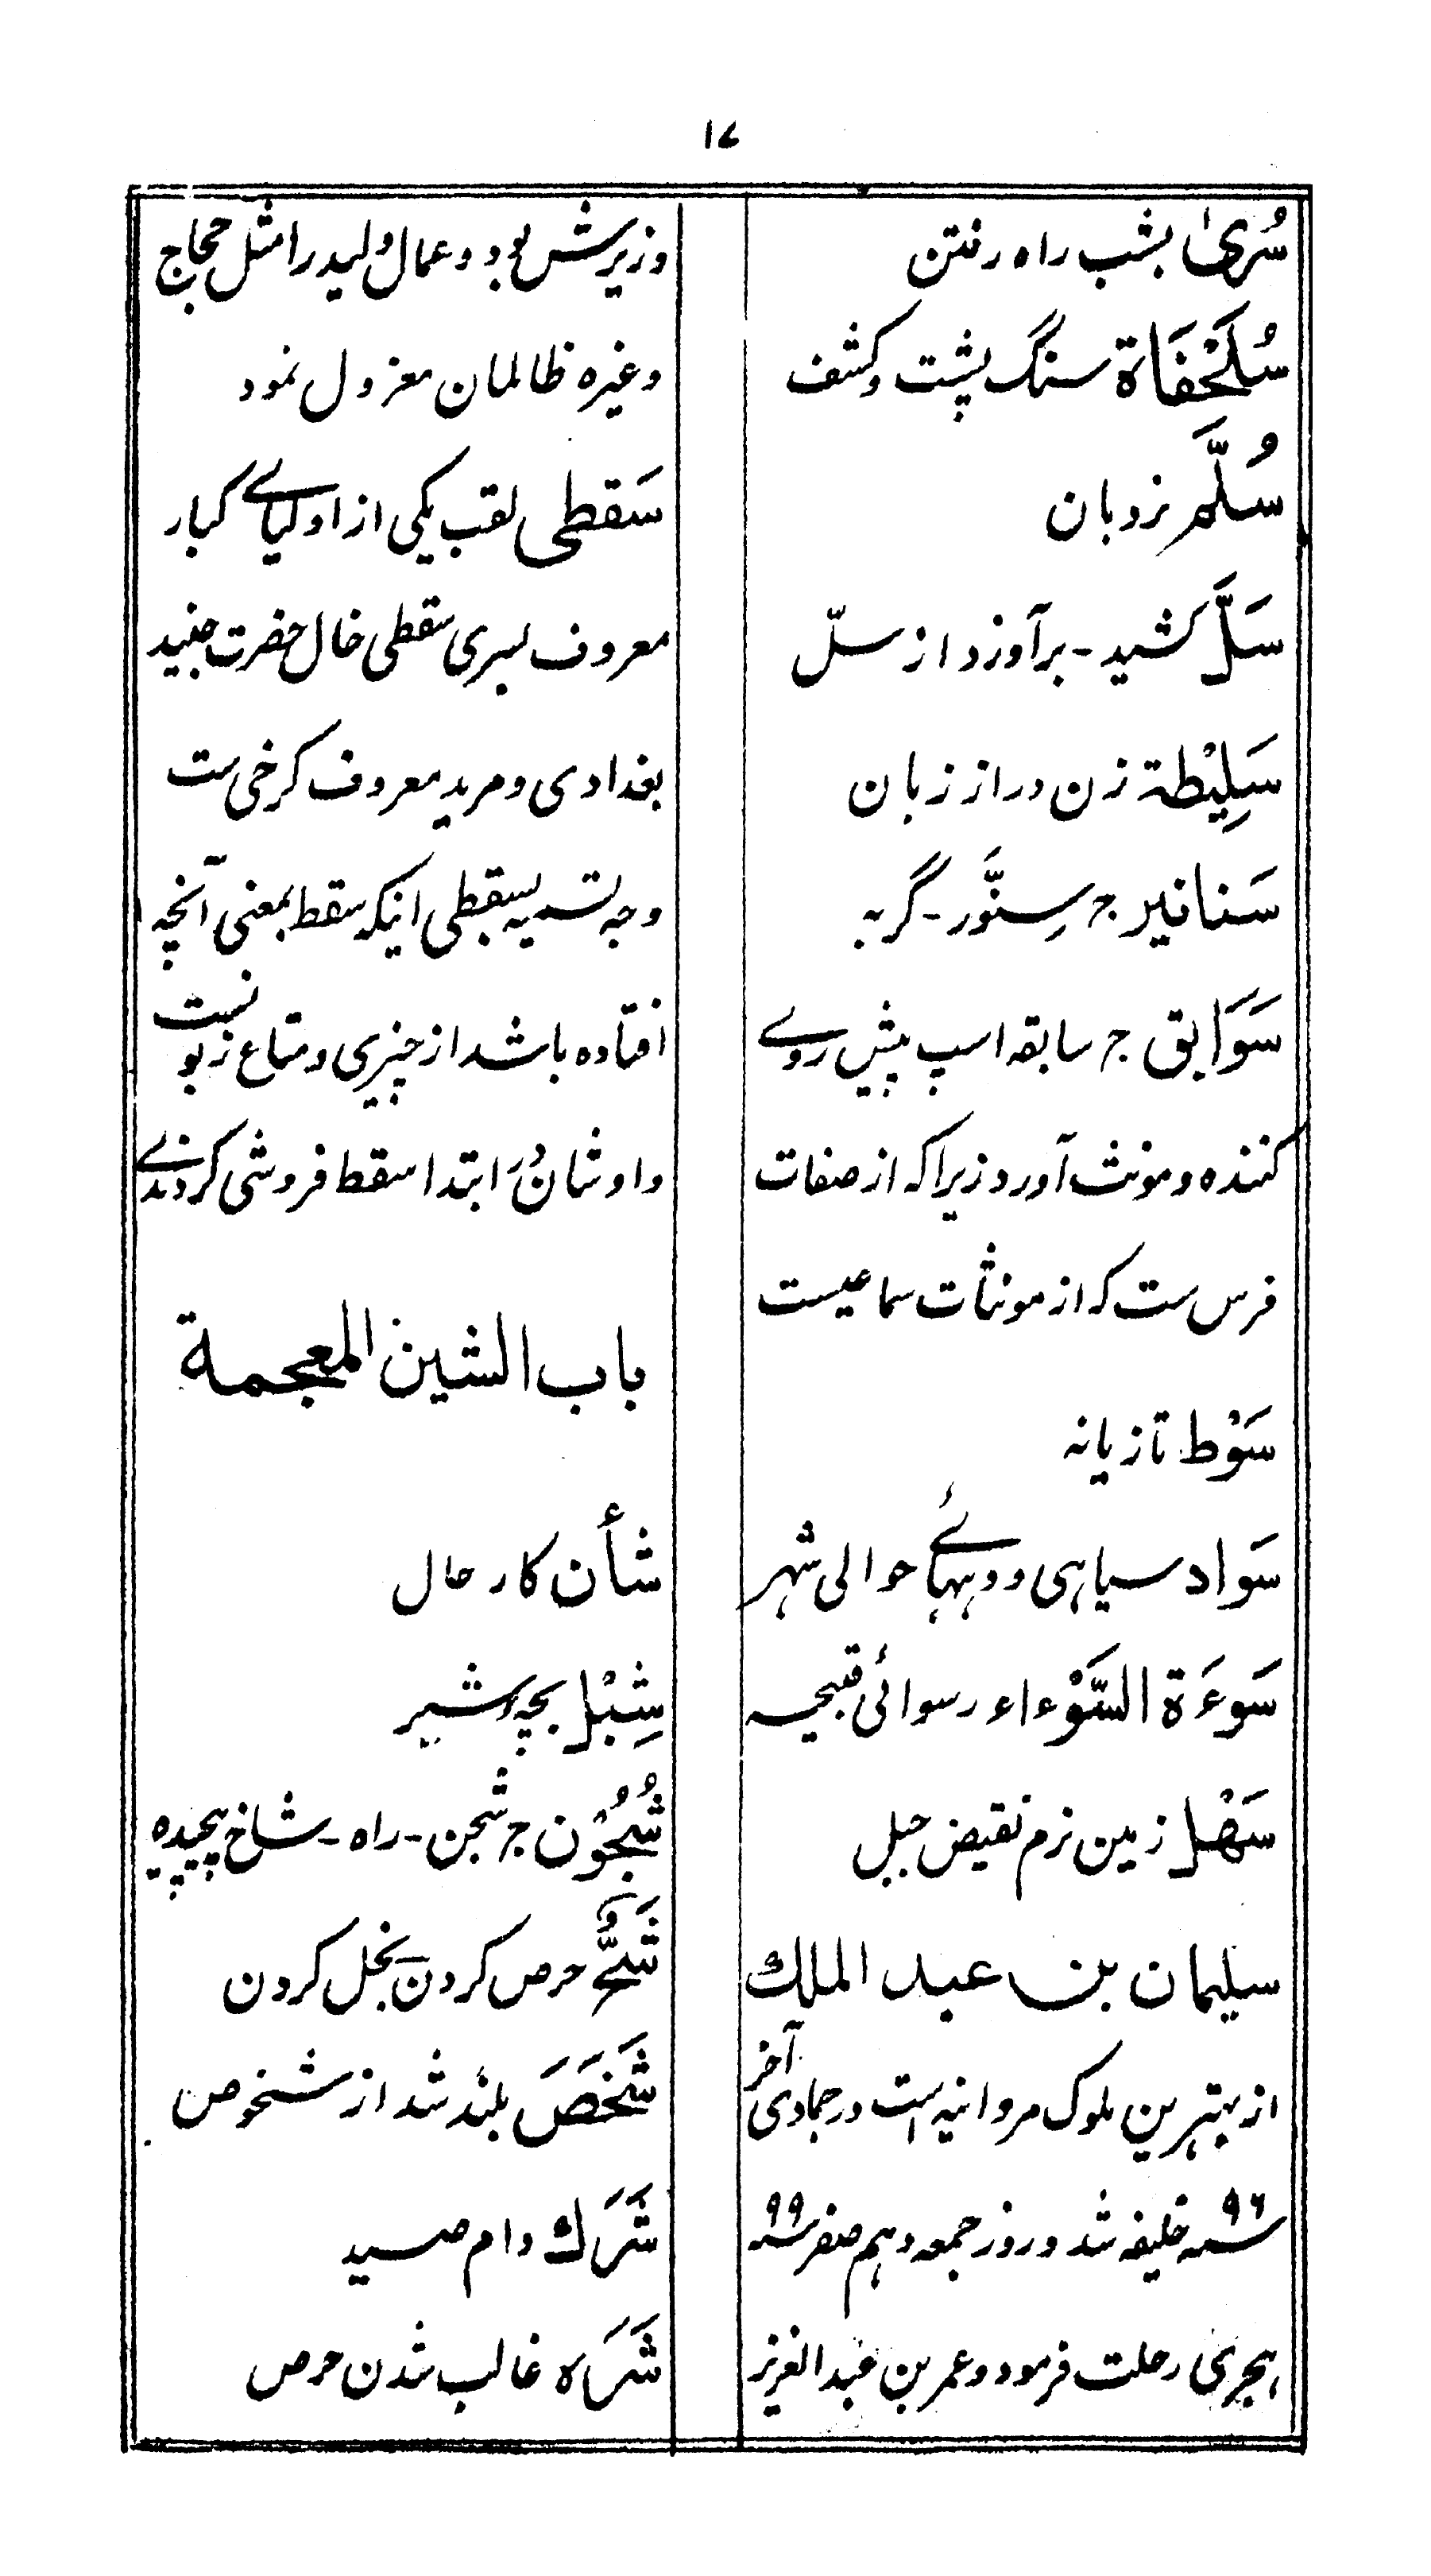 ۱۷
سُریٰ بشب راه رفتن
سُلَحْفَاة سنگ پشت و کشف
سُلَّم نردبان
سَلَّ کشید - برآورد از سلّ
سَلِیْطة زن دراز زبان
سَنانیر ج سِنَّور - گربه
سَوَابق ج سابقه اسپ پیش روے
کننده و مونث آورد زیراکه از صفات
فرس ست که از مونثات سماعیست
سَوْط تازیانه
سَواد سیاہی و دیہائے حوالی شہر
سَوءَة السَّوْءاء رسوائی قبیحه
سَهْل زمین نرم نقیض جبل
سلیمان بن عبد الملك
از بہترین ملوک مروانیه است در جمادی آخر
سنه ۹۶ خلیفه شد و روز جمعه دہم صفر سنه ۹۹
ہجری رحلت فرمود و عمر بن عبد العزیز
وزیرش بود و عمال ولید را مثل حجاج
و غیره ظالمان معزول نمود
سَقطی لقب یکی از اولیاے کبار
معروف بسری سقطی خال حضرت جنید
بغدادی و مرید معروف کرخی ست
وجه تسمیه بسقطی اینکه سقط بمعنی آنچه
افتاده باشد از چیزی و متاع زبو نست
و اوشان دَر ابتدا سقط فروشی کردندے
باب الشین المعجمة
شأن کار حال
شِبْل بچهٔ شیر
شُجُوْن ج شجن - راه - شاخ پیچیده
شَُحّ حرص کردن بخل کردن
شَخَصَ بلند شد از شخوص
شَرَك دام صید
شَرَه غالب شدن حرص